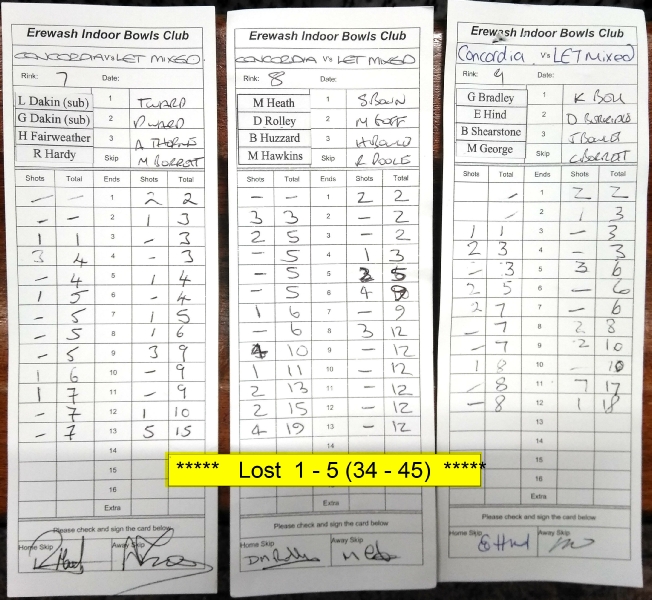 Erewash Indoor Bowls Club
CONCORDIA Vs LET MIXED
Rink: 7 Date:
L Dakin (sub) 1 T WARD
G Dakin (sub) 2 D WARD
H Fairweather 3
R Hardy Skip M BORRETT
Shots Total Ends Shots Total
- - 1 2 2
- - 2 1 3
1 1 3 - 3
3 4 4 - 3
- 4 5 1 4
1 5 6 - 4
- 5 7 1 5
- 5 8 1 6
- 5 9 3 9
1 6 10 - 9
1 7 11 - 9
- 7 12 1 10
- 7 13 5 15
14
15
16
Extra
Please check and sign the card below
Home Skip Away Skip
Erewash Indoor Bowls Club
CONCORDIA Vs LET MIXED
Rink: 8 Date:
M Heath 1
D Rolley 2 M GOFF
B Huzzard 3
M Hawkins Skip R POOLE
Shots Total Ends Shots Total
- - 1 2 2
3 3 2 - 2
2 5 3 - 2
- 5 4 1 3
- 5 5 2 5
- 5 6 4 9
1 6 7 - 9
- 6 8 3 12
4 10 9 - 12
1 11 10 - 12
2 13 11 - 12
2 15 12 - 12
4 19 13 - 12
14
Extra
Please check and sign the card below
Home Skip Away Skip
Erewash Indoor Bowls Club
Concordia Vs LET MIXED
Rink: 9 Date:
G Bradley 1
E Hind 2
B Shearstone 3
M George Skip C BORRETT
Shots Total Ends Shots Total
- 1 2 2
- 2 1 3
1 1 3 - 3
2 3 4 - 3
- 3 5 3 6
2 5 6 - 6
2 7 7 - 6
- 7 8 2 8
- 7 9 2 10
1 8 10 - 10
- 8 11 7 17
- 8 12 1 18
13
14
15
16
Extra
Please check and sign the card below
Home Skip Away Skip
E Hind
***** Lost 1 - 5 (34 - 45) *****